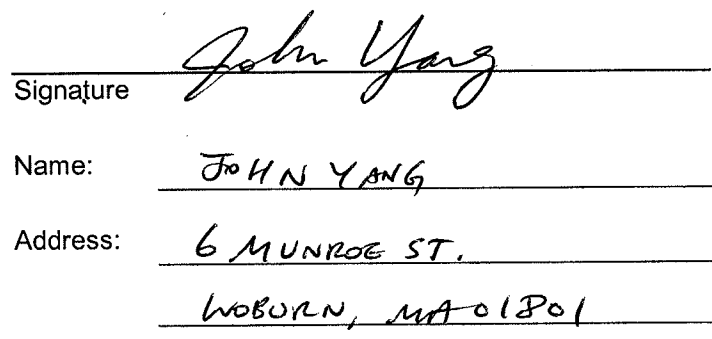 John Yang
Signature
Name: JOHN YANG
Address: 6 MUNROE ST.
WOBURN, MA 01801